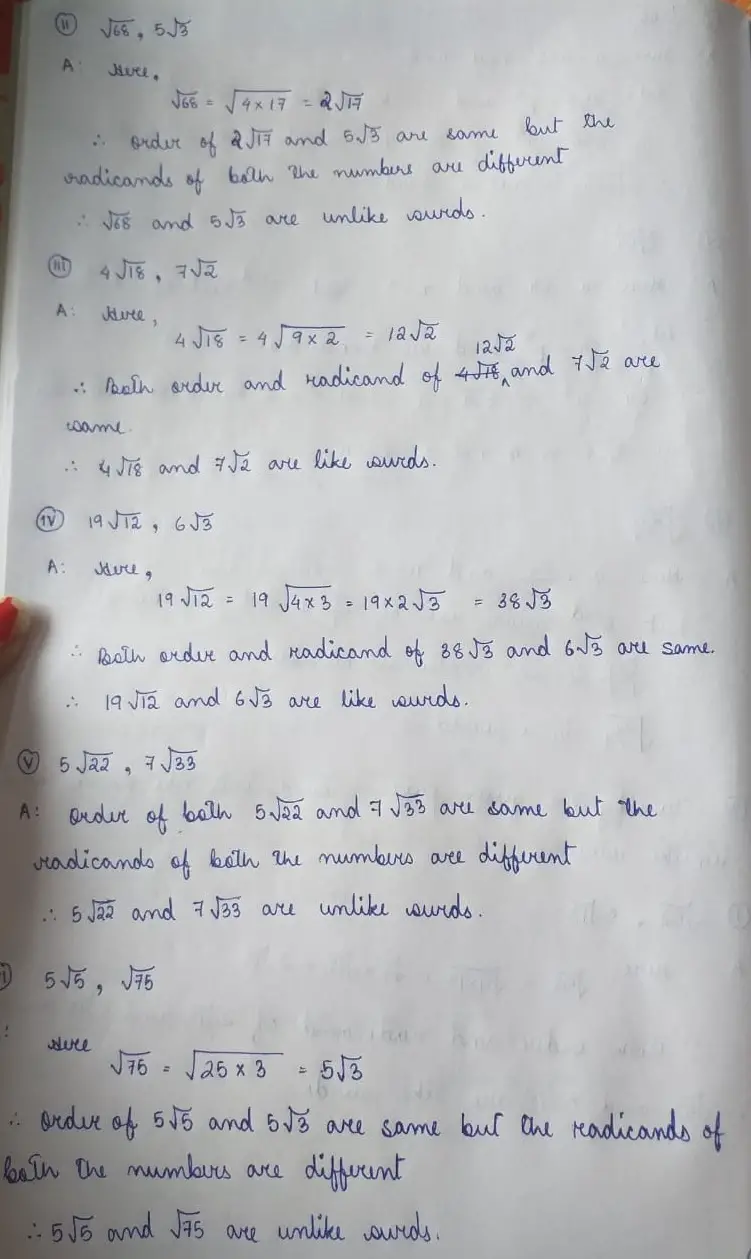 (ii) √68, 5√3
A: Here,
√68 = √4×17 = 2√17
∴ order of 2√17 and 5√3 are same but the
radicands of both the numbers are different
∴ √68 and 5√3 are unlike surds.
(iii) 4√18, 7√2
A: Here,
4√18 = 4√9×2 = 12√2
12√2
∴ Both order and radicand of 4√18 ^ and 7√2 are
same.
∴ 4√18 and 7√2 are like surds.
(iv) 19√12, 6√3
A: Here,
19√12 = 19√4×3 = 19×2√3 = 38√3
∴ Both order and radicand of 38√3 and 6√3 are same.
∴ 19√12 and 6√3 are like surds.
(v) 5√22, 7√33
A: order of both 5√22 and 7√33 are same but the
radicands of both the numbers are different
∴ 5√22 and 7√33 are unlike surds.
5√5, √75
: Here
√75 = √25×3 = 5√3
∴ order of 5√5 and 5√3 are same but the radicands of
both the numbers are different
∴ 5√5 and √75 are unlike surds.